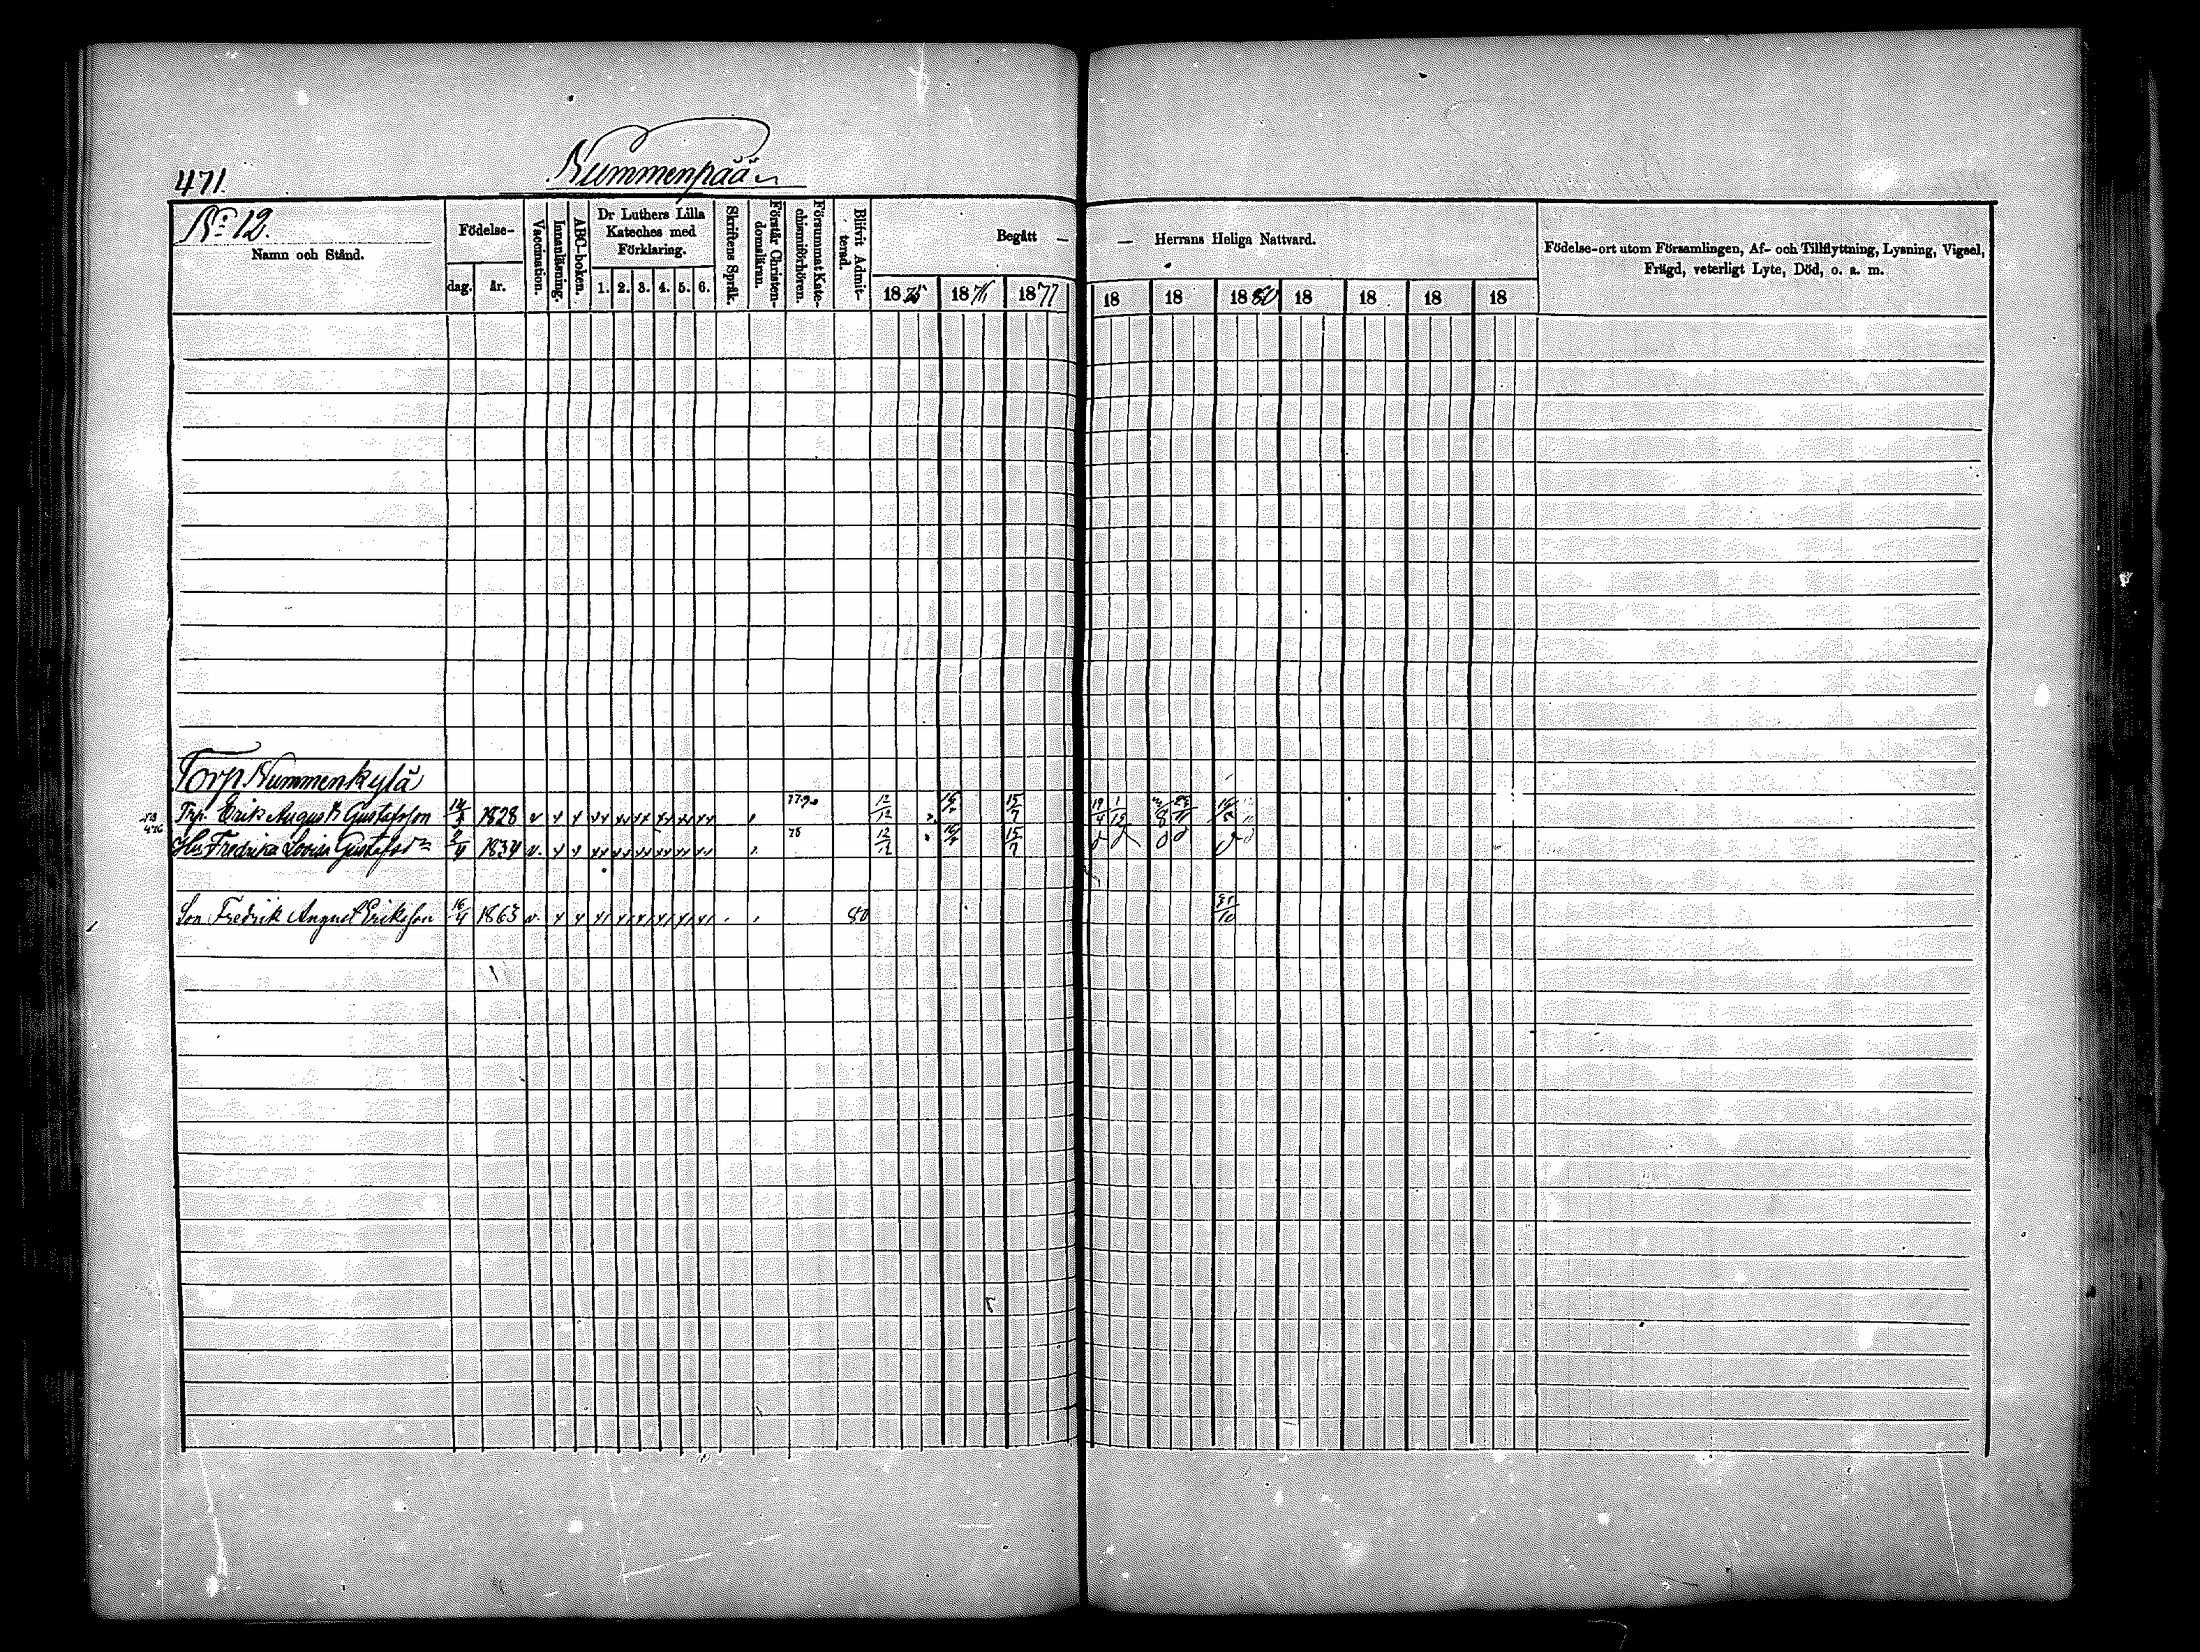 471.
Nummenpää
No 12.
Namn och Stånd.
Födelse-
dag.
år.
Vaccination.
Innanläsning.
ABC-boken.
Dr Luthers Lilla
Kateches med
Förklaring.
1. 2. 3. 4. 5. 6.
Skriftens Språk.
Förstår Christen-
domsläran.
Försummat Kate-
chismiförhören.
Blifvit Admit-
terad.
Begått —
1875 1876 1877
— Herrans Heliga Nattvard.
18 18 1880 18 18 18 18
Födelse-ort utom Församlingen, Af- och Tillflyttning, Lysning, Vigsel,
Frägd, veterligt Lyte, Död, o. s. m.
Torp Nummenkylä
Trp. Erik August Gustafsson 1828 12/12 15/7
Hu Fredrika Lovisa 1834 78 12/12 15/7
Son Fredrik August Eriksson 16/4 1863 80